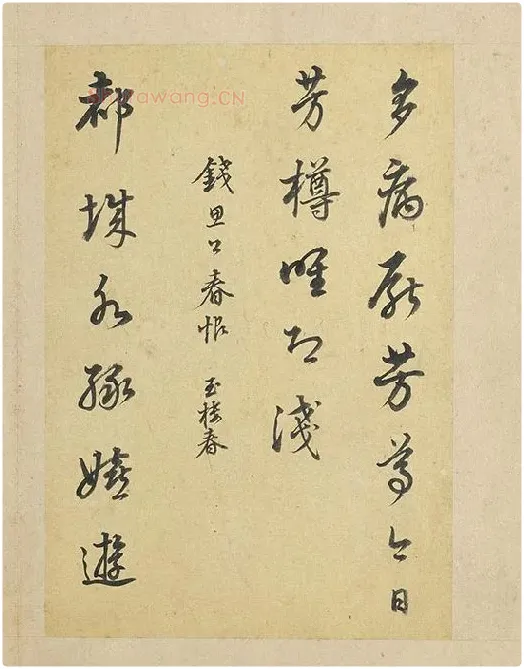 多病厭芳尊今日
芳樽唯恐淺
錢思公春恨 玉樓春
都城水緑嬉遊